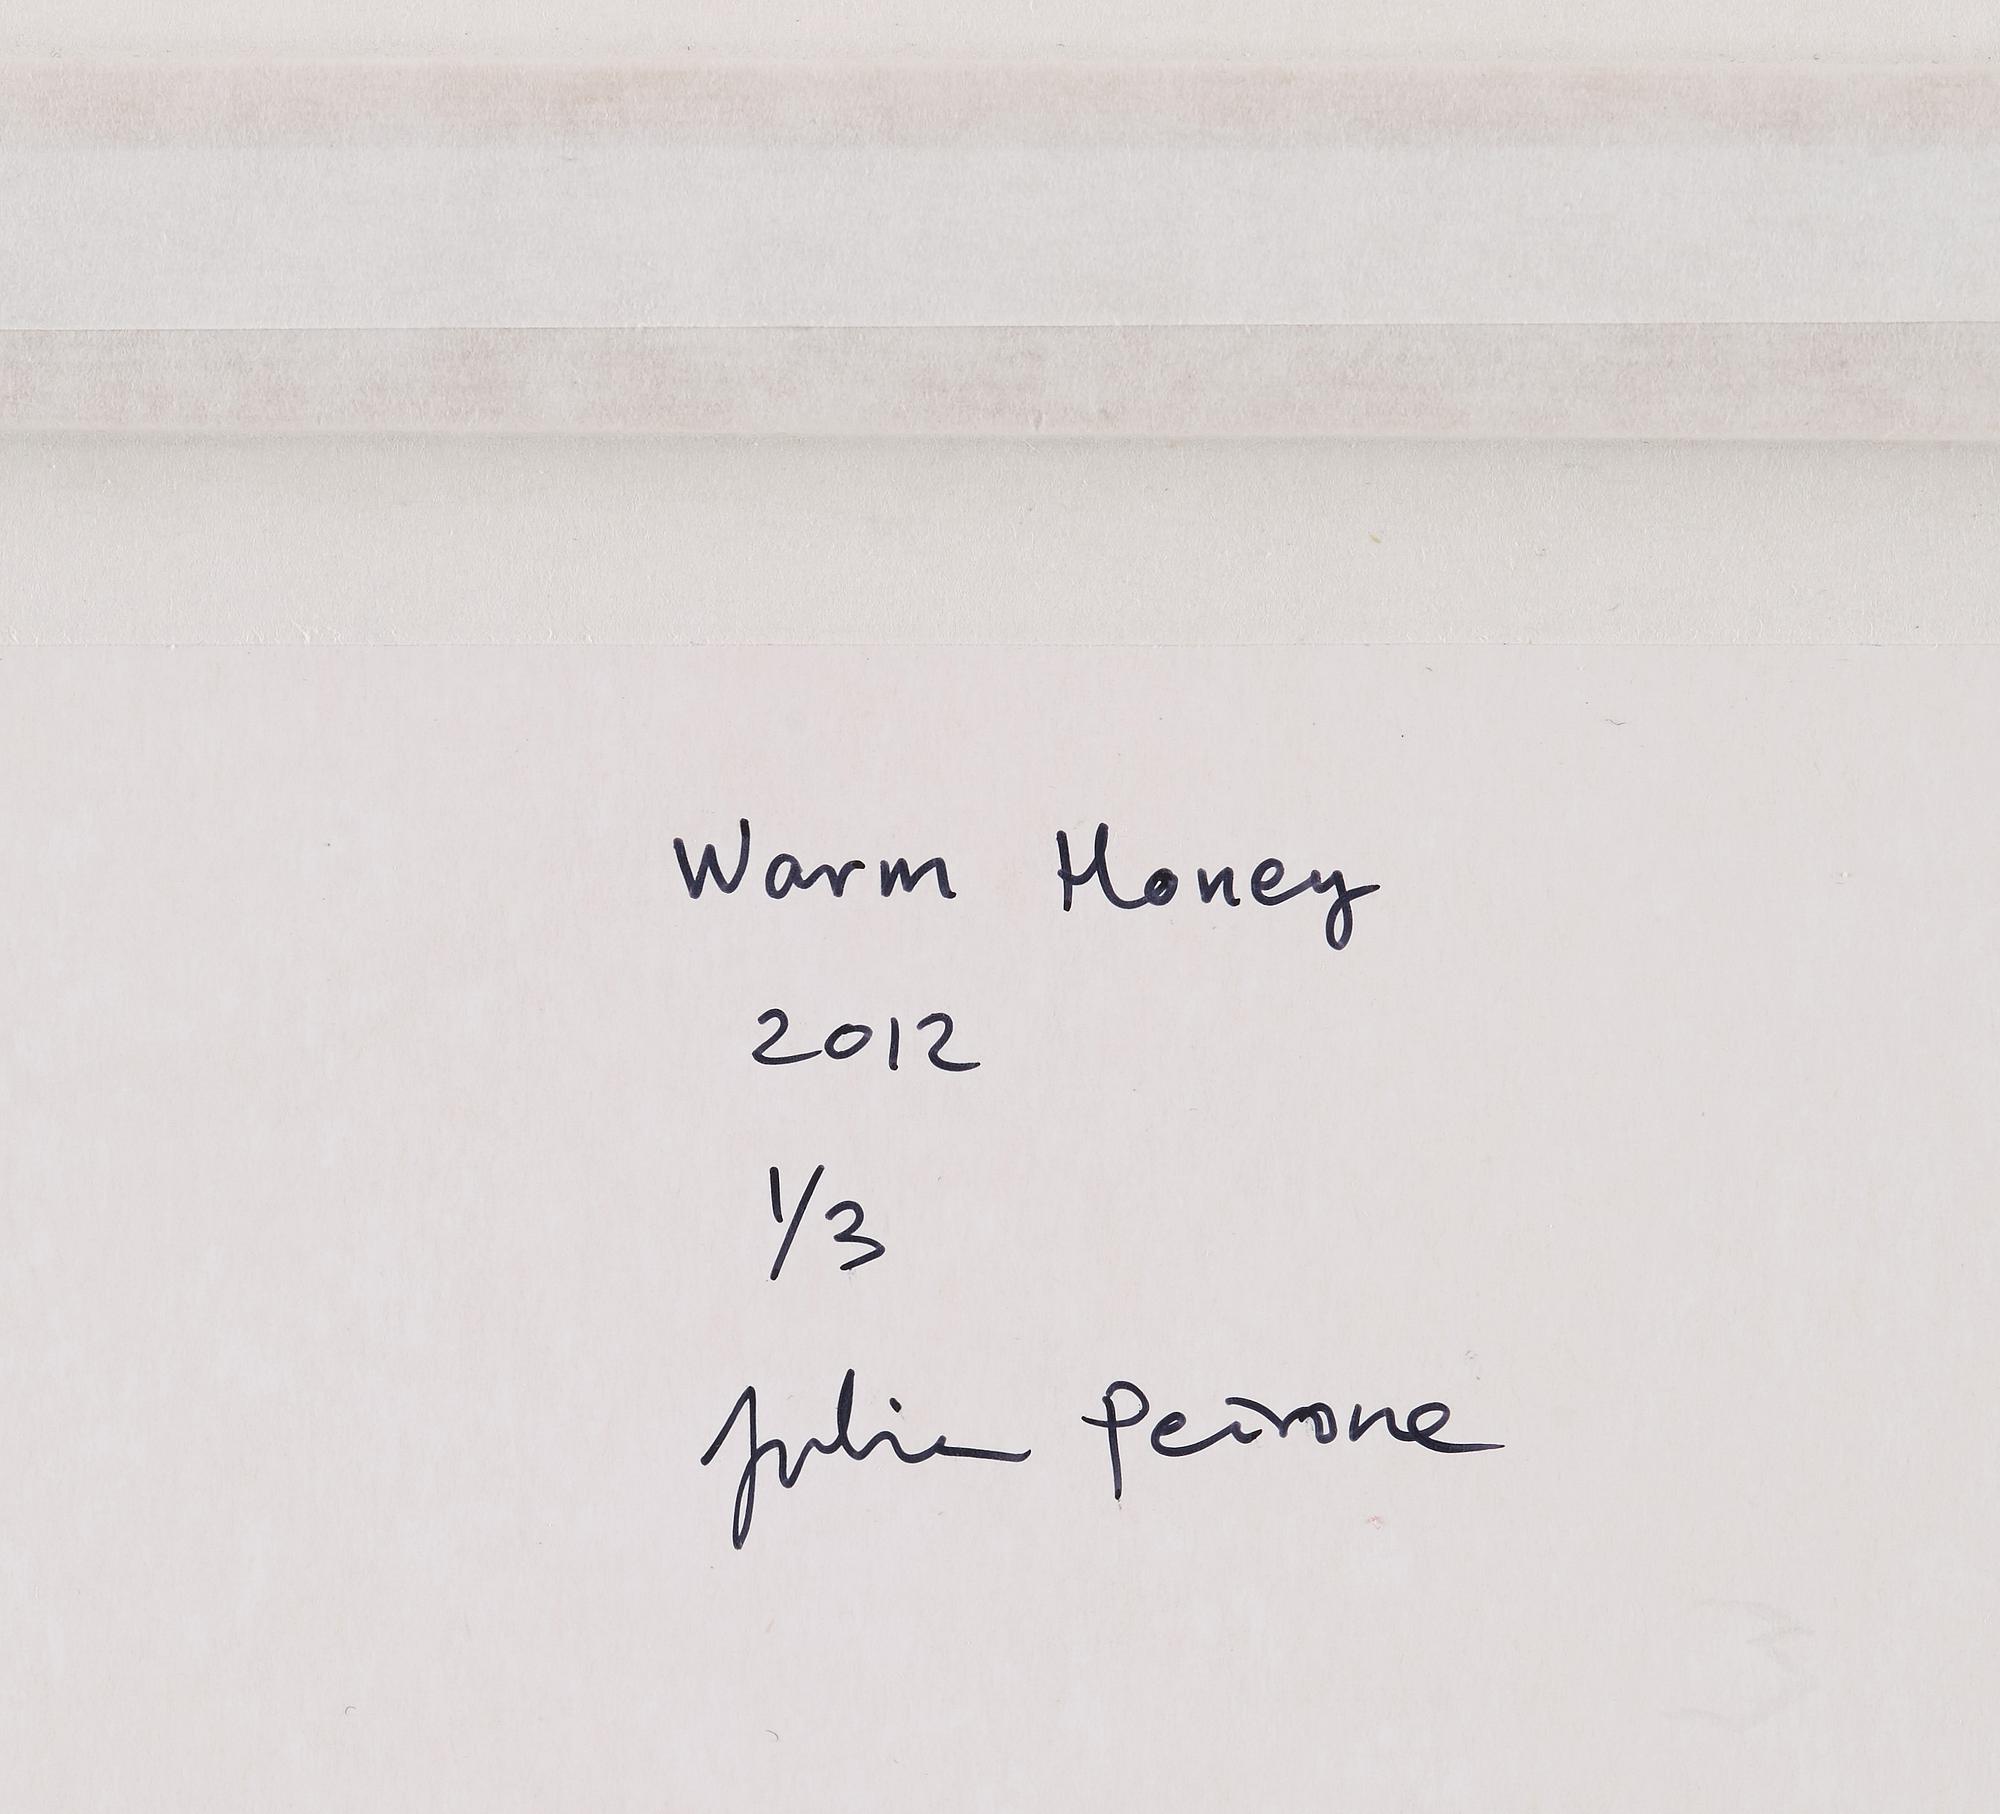 Warm Honey
2012
1/3
Julia Peirone